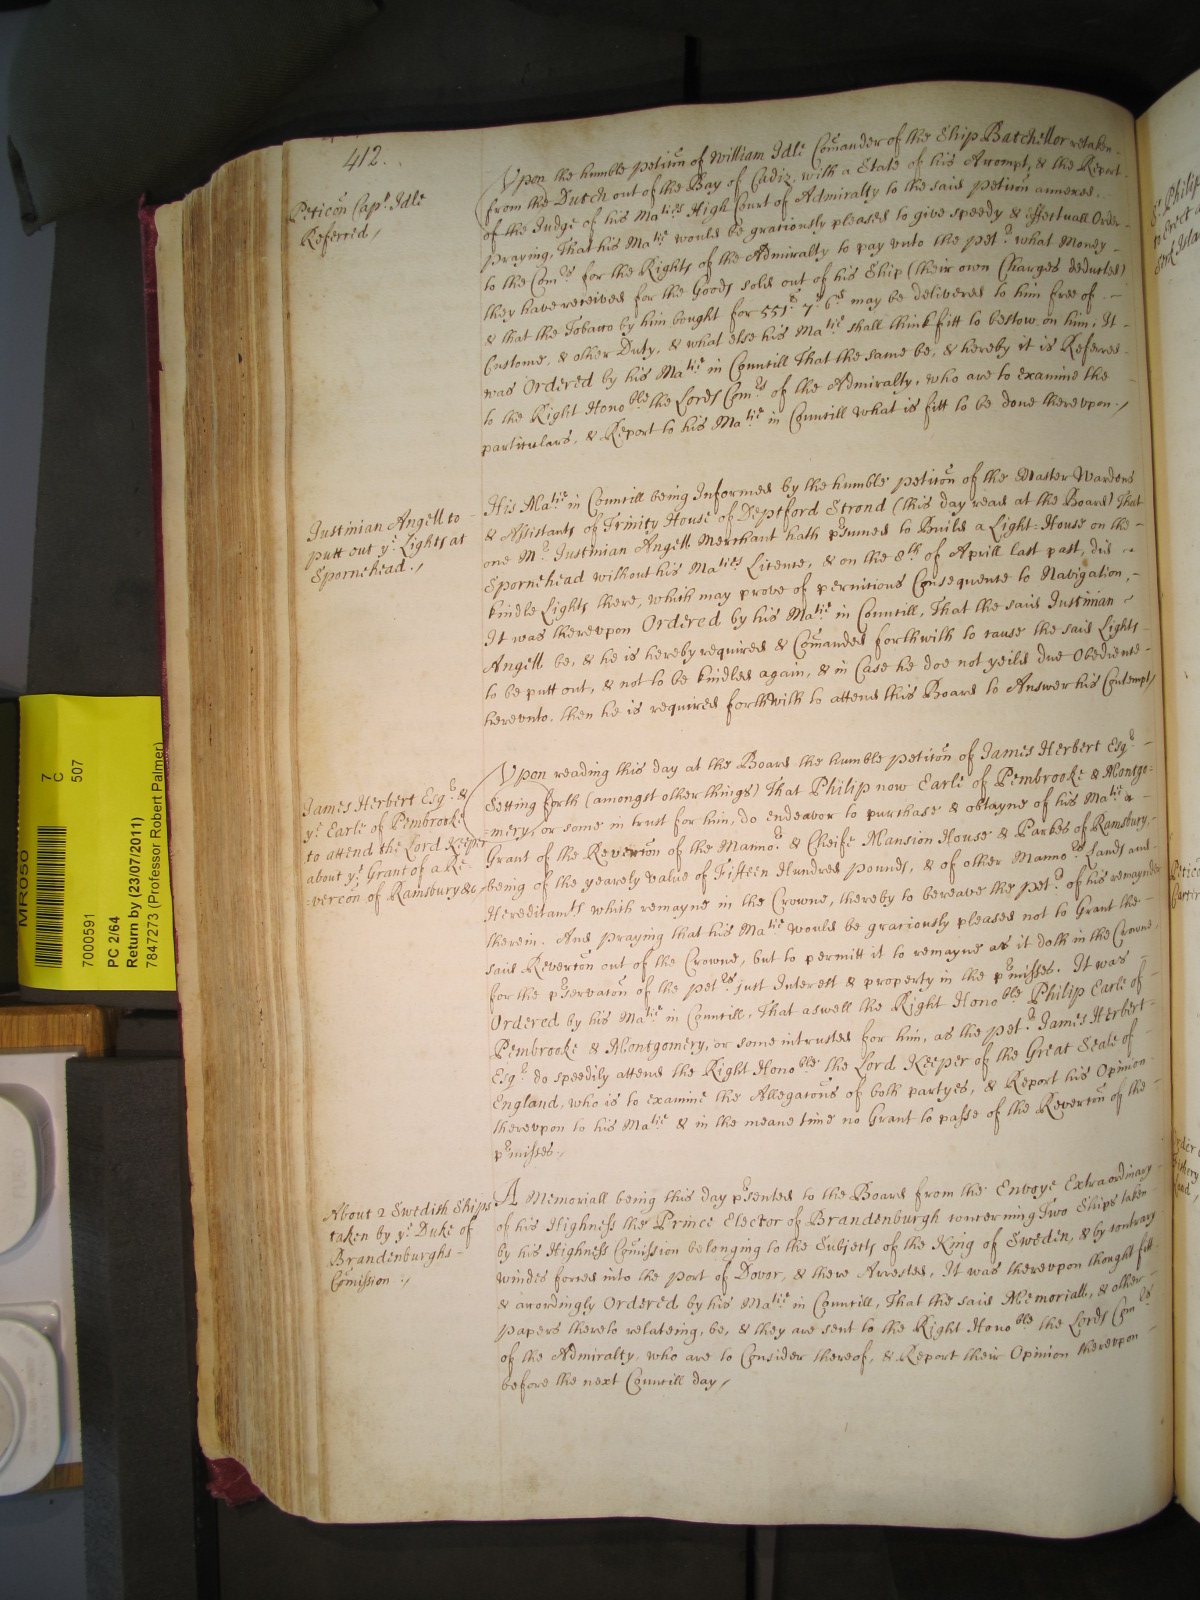 412.
Peticõn Capt. Idle
Referred /
Vpon the humble peticõn of William Idle Comander of the Ship Batchellor retaken
from the Dutch out of the Bay of Cadiz, with a State of his Accompt, & the Report
of the Judge of his Maties High Court of Admiralty to the said peticõn annexed.
praying, That his Matie would be gratiously pleased to give speedy & effectuall Order
to the Comrs for the Rights of the Admiralty to pay vnto the petr what Money
they have received for the Goods sold out of his Ship (their own Charges deducted)
& that the Tobacco by him bought for 551li 7s 6d may be delivered to him free of
Custome, & other Duty, & what else his Matie shall think fitt to bestow on him; It
was Ordered by his Matie in Councill That the same be, & hereby it is Referred
to the Right Honoble the Lords Comrs of the Admiralty, who are to examine the
particulars, & Report to his Matie in Councill what is fitt to be done therevpon. /
Justinian Angell to
putt out ye Lights at
Spornehead. /
His Matie in Councill being Informed by the humble peticõn of the Master Wardens
& Assistants of Trinity House of Deptford Strond (this day read at the Board) That
one Mr Justinian Angell Merchant hath prsumed to Build a Light-House on the
Spornehead without his Maties Licence, & on the 8th of Aprill last past, did
kindle Lights there, which may prove of pernitious Consequence to Navigation,
It was therevpon Ordered by his Matie in Councill, That the said Justinian
Angell be, & he is hereby required & Comanded forthwith to cause the said Lights
to be putt out, & not to be kindled again, & in Case he doe not yeild due Obedience
herevnto, then he is required forthwith to attend this Board to Answer his Contempt /
James Herbert Esqr &
ye Earle of Pembrooke
to attend the Lord Keeper
about ye Grant of a Re=
=vercõn of Ramsbury &c /
Vpon reading this day at the Board the humble peticõn of James Herbert Esqr
Setting forth (amongst other things) That Philip now Earle of Pembrooke & Montgo=
=mery, or some in trust for him, do endeavor to purchase & obtayne of his Matie a
Grant of the Revertõn of the Mannor & Cheife Mansion House & Parkes of Ramsbury,
being of the yearely value of Fifteen Hundred pounds, & of other Mannors Lands and
Hereditamts which remayne in the Crowne, thereby to bereave the petr of his remaynder
therein. And praying that his Matie would be gratiously pleased not to Grant the
said Revertõn out of the Crowne, but to permitt it to remayne as it doth in the Crowne,
for the prservatõn of the petrs just Interest & property in the prmisses. It was
Ordered by his Matie in Councill, That aswell the Right Honoble Philip Earle of
Pembrooke & Montgomery, or some intrusted for him, as the petr James Herbert
Esqr do speedily attend the Right Honoble the Lord Keeper of the Great Seale of
England, who is to examine the Allegatõns of both partyes, & Report his Opinion
therevpon to his Matie & in the meane time no Grant to passe of the Revertõn of the
prmisses. /
About 2 Swedish Ships
taken by ye Duke of
Brandenburghs
Comission. /
A Memoriall being this day prsented to the Board from the Envoye Extraordinary
of his Highness the Prince Elector of Brandenburgh concerning Two Ships taken
by his Highness Comission belonging to the Subjects of the King of Sweden, & by contrary
windes forced into the port of Dovor, & there Arrested, It was therevpon thought fitt
& accordingly Ordered by his Matie in Councill, That the said Memoriall, & other
papers thereto relateing, be, & they are sent to the Right Honoble the Lords Comrs
of the Admiralty, who are to Consider thereof, & Report their Opinion therevpon
before the next Councill day /
MR050
7
C
507
7000591
PC 2/64
Return by (23/07/2011)
7847273 (Professor Robert Palmer)